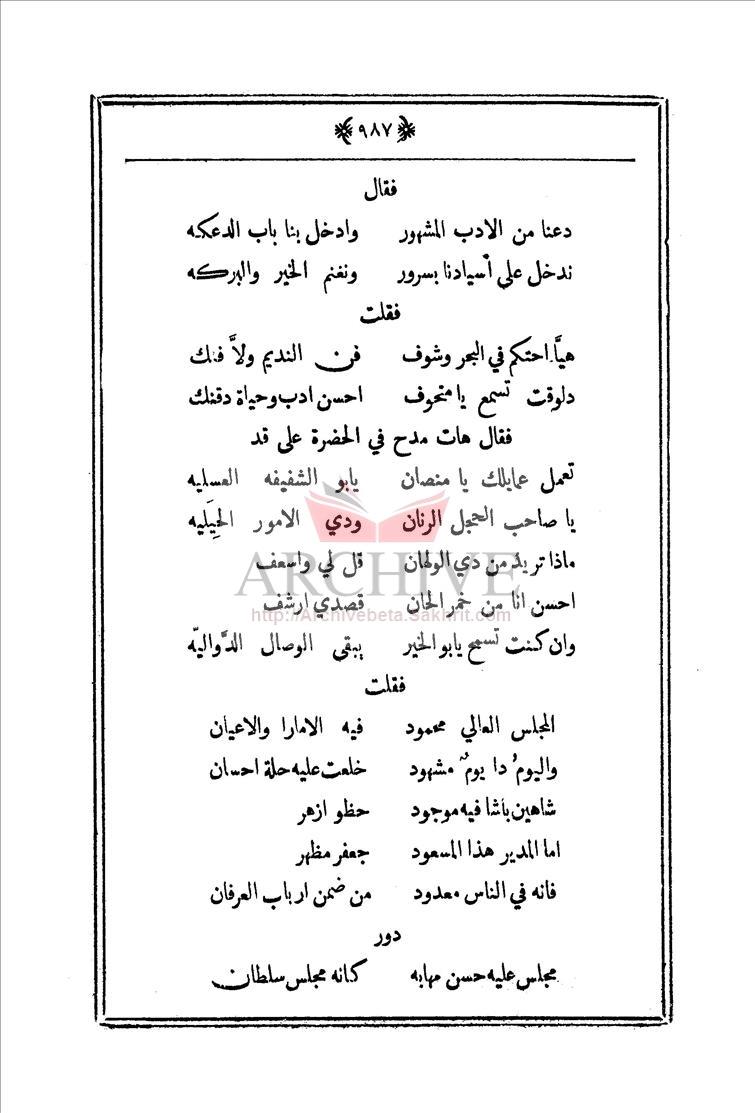 ﴿٩٨٧﴾
فقال
دعنا من الادب المشهور وادخل بنا باب الدعكه
ندخل على أسيادنا بسرور ونغنم الخير والبركه
فقلت
هيَّا احتكم في البحر وشوف فن النديم ولاَّ فنك
دلوقت تسمع يا متحوف احسن ادب وحياة دقنك
فقال هات مدح في الحضرة على قد
تعمل عمايلك يا منصان يابو الشفيفه العسليه
يا صاحب الحجل الرنان ودي الامور الحِيَليه
ماذا تريد من ذي الولهان قل لي واسعف
احسن انا من خمر الحان قصدي ارشف
وان كنت تسمح يابو الخير يبقى الوصال الدَّواليّه
فقلت
المجلس العالي محمود فيه الامارا والاعيان
واليومُ دا يومٌ مشهود خلعت عليه حلة احسان
شاهين باشا فيه موجود حظو ازهر
اما المدير هذا المسعود جعفر مظهر
فانه في الناس معدود من ضمن ارباب العرفان
دور
مجلس عليه حسن مهابه كانه مجلس سلطان
ARCHIVE
http://Archivebeta.Sakhrit.com